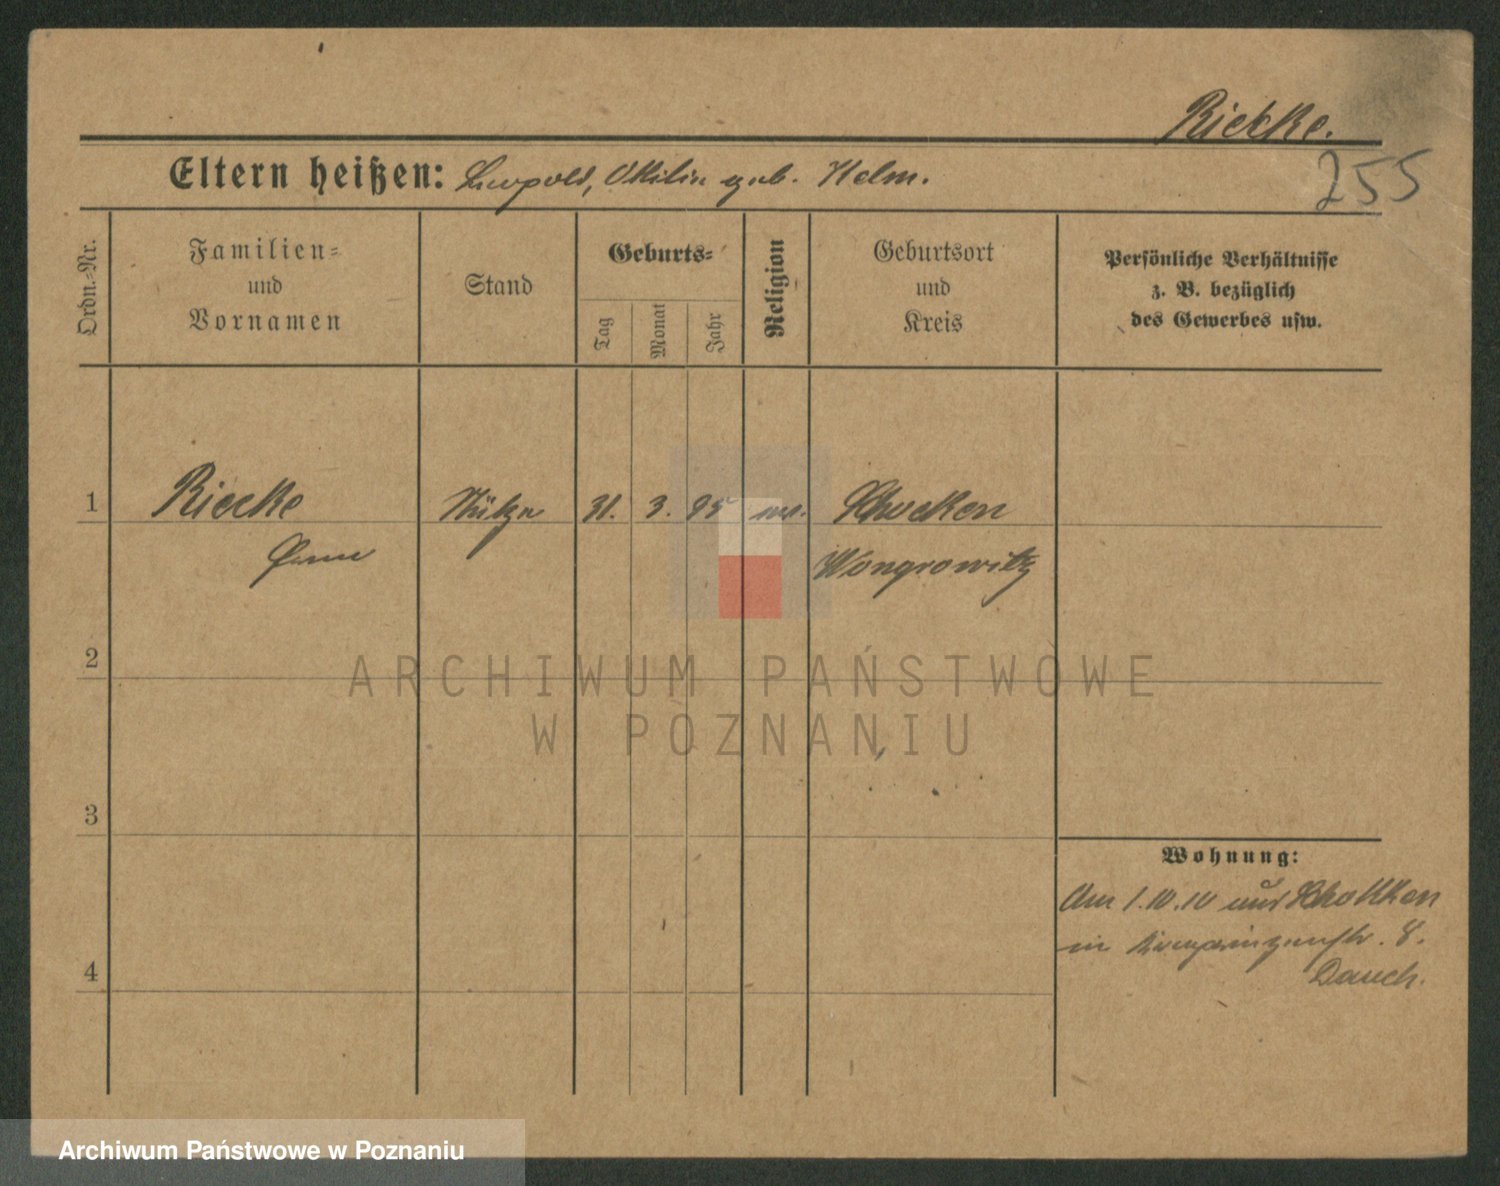 Riecke.
255
Eltern heißen: Leopold, Ottilie geb. Helm.
Ordn.-Nr.
Familien-
und
Vornamen
Stand
Geburts-
Tag
Monat
Jahr
Religion
Geburtsort
und
Kreis
Persönliche Verhältnisse
z. B. bezüglich
des Gewerbes usw.
1 Riecke Stütze 31. 3. 95 ev. Schocken
Wongrowitz
2
3
4
Wohnung:
Am 1.10.10 aus Schokken
in 8.
ARCHIWUM PAŃSTWOWE
W POZNANIU
Archiwum Państwowe w Poznaniu